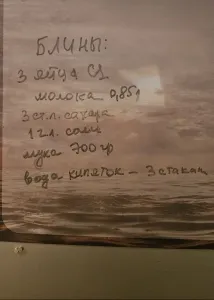 БЛИНЫ:
3 яйца С1
молока 0,85л
3 ст.л. сахара
1 ч.л. соли
мука 700 гр
вода кипяток – 3 стакан